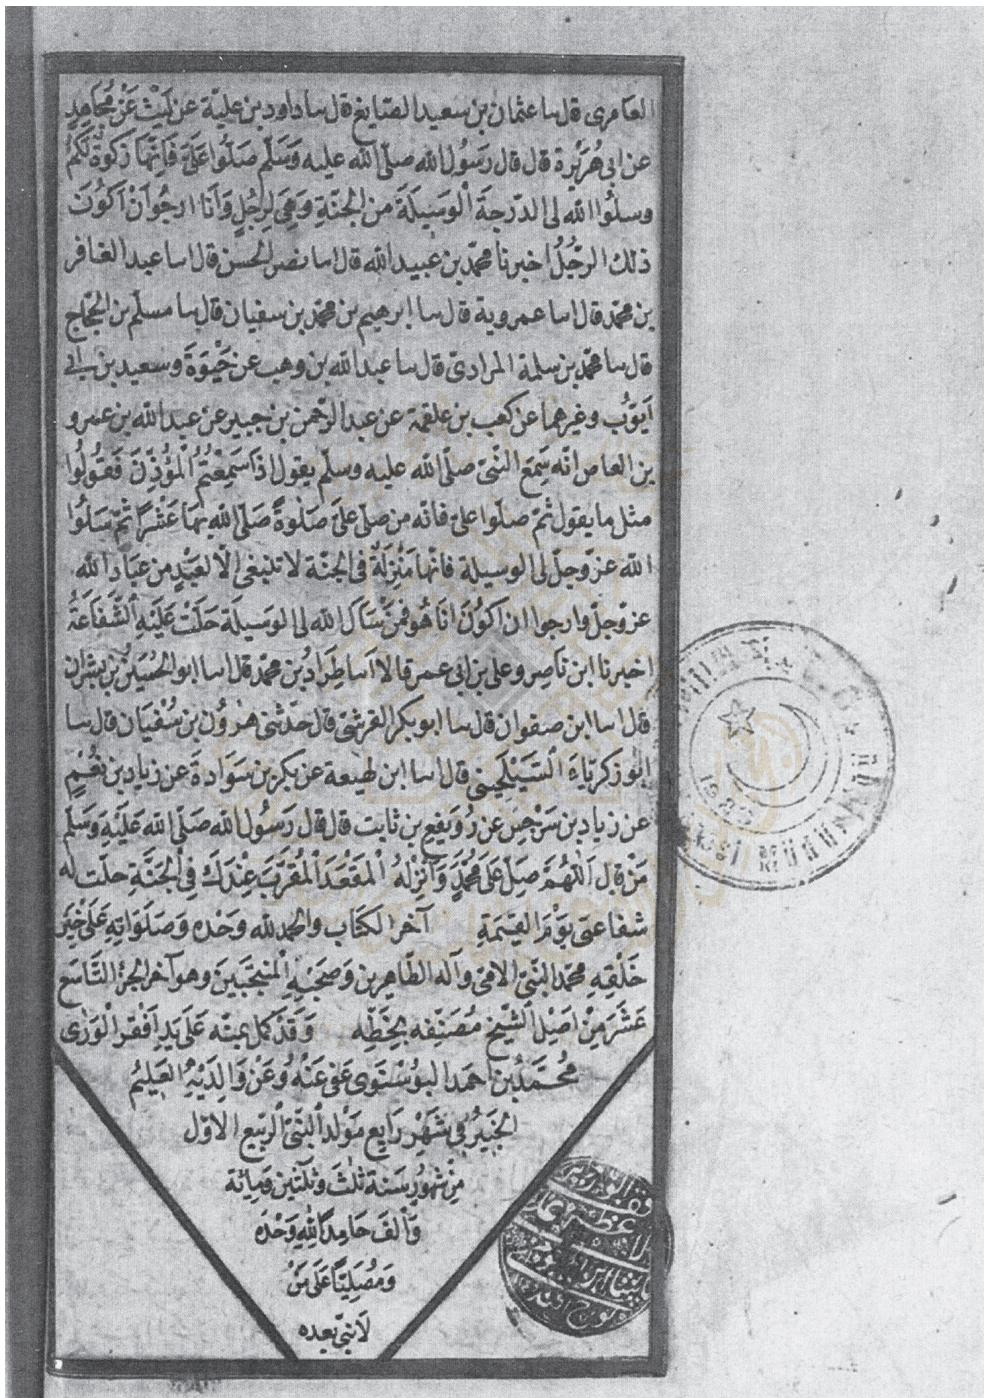 العامرى قال سا عثمان بن سعيد الصايغ قال سا داود بن علية عن ليث عن مجاهد
عن ابى هريرة قال قال رسول الله صلى الله عليه وسلم صلوا على فانها زكوة لكم
وسلوا الله لى الدرجة الوسيلة من الجنة وهى لرجل وانا ارجوا ان اكون
ذلك الرجل اخبرنا محمد بن عبيد الله قال اسا نصر الحسن قال اسا عبد الغافر
بن محمد قال اسا عمروية قال سا ابرهيم بن محمد بن سفيان قال سا مسلم بن الحجاج
قال سا محمد بن سلمة المرادى قال سا عبد الله بن وهب عن حيوة وسعيد بن ابى
ايوب وغيرهما عن كعب بن علقمة عن عبد الرحمن بن جبير عن عبد الله بن عمرو
بن العاص انه سمع النبى صلى الله عليه وسلم يقول اذا سمعتم المؤذن فقولوا
مثل ما يقول ثم صلوا على فانه من صلى على صلوة صلى الله بها عشرا ثم سلوا
الله عز وجل لى الوسيلة فانها منزلة فى الجنة لا تنبغى الا لعبد من عباد الله
عز وجل وارجوا ان اكون انا هو فمن سأل الله لى الوسيلة حلت عليه الشفاعة
اخبرنا ابن ناصر وعلى بن ابى عمر قالا اسا طراد بن محمد قال اسا ابو الحسين بن بشران
قال اسا ابن صفوان قال سا ابو بكر القرشى قال حدثنى هرون بن سفيان قال سا
ابو زكرياء السيلحينى قال اسا ابن لهيعة عن بكر بن سوادة عن زياد بن نعيم
عن زياد بن سرجس عن رويفع بن ثابت قال قال رسول الله صلى الله عليه وسلم
من قال اللهم صل على محمد وانزله المقعد المقرب عندك فى الجنة حلت له
شفاعتى يوم القيمة آخر الكتاب والحمد لله وحده وصلواته على خير
خلقه محمد النبى الامى وآله الطاهرين وصحبه المنتجبين وهو آخر الجزء التاسع
عشر من اصل الشيخ مصنفه بخطه وقد كمل بمنه على يد افقر الورى
محمد بن احمد البوسنوى عفى عنه وعن والديه العليم
الخبير فى شهر رابع مولد النبى الربيع الاول
من شهور سنة ثلث وثلثين ومائة
والف حامدا لله وحده
ومصليا على من
لا نبى بعده